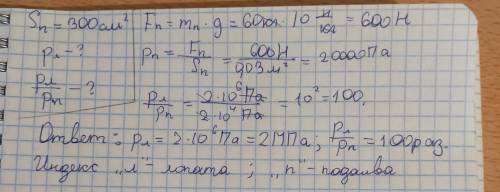 Sп = 300 см² Fп = mп · g = 60кг · 10 Н/кг = 600 Н
pл - ? pп = Fп/Sп = 600Н/0,03 м² = 20000Па
pл/pп - ? pл/pп = 2·10⁶ Па/2·10⁴ Па = 10² = 100.
Ответ: pл = 2·10⁶ Па = 2МПа; pл/pп = 100раз.
Индекс „л" - лопата ; „п" - подошва